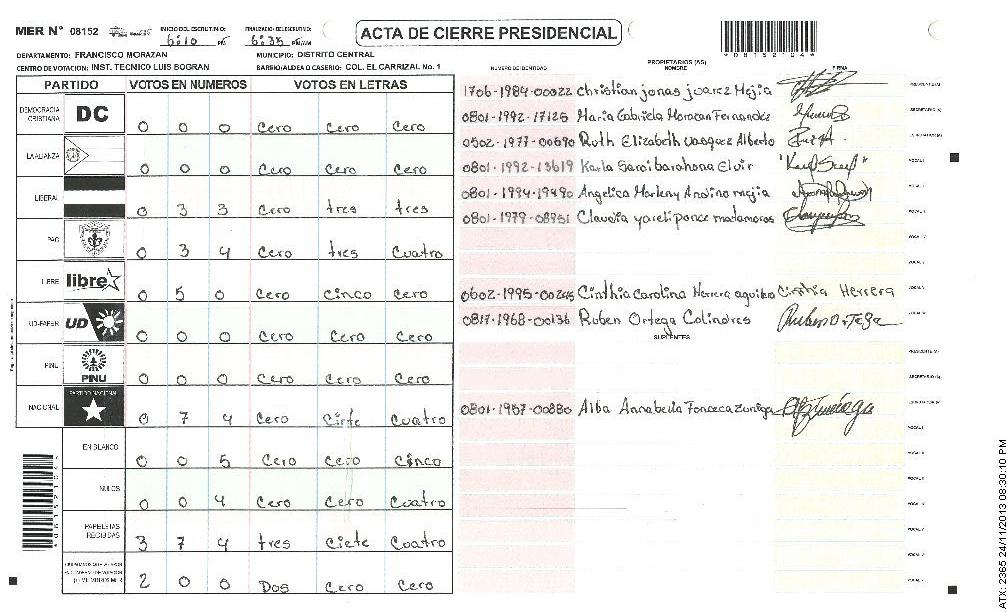 MER N° 08152 INICIO DEL ESCRUTINIO: 6:10 PM FINALIZACIO DEL ESCRUTINIO: 6:35 PM/AM
ACTA DE CIERRE PRESIDENCIAL
DEPARTAMENTO: FRANCISCO MORAZAN MUNICIPIO: DISTRITO CENTRAL
CENTRO DE VOTACION: INST. TECNICO LUIS BOGRAN BARRIO/ALDEA O CASERIO: COL. EL CARRIZAL No. 1
PARTIDO VOTOS EN NUMEROS VOTOS EN LETRAS
DEMOCRACIA CRISTIANA DC 0 0 0 Cero Cero Cero
LA ALIANZA 0 0 0 Cero Cero Cero
LIBERAL 0 3 3 Cero tres tres
PAC 0 3 4 Cero tres Cuatro
LIBRE libre 0 5 0 Cero Cinco Cero
UD-FAPER UD 0 0 0 Cero Cero Cero
PINU PINU 0 0 0 Cero Cero Cero
NACIONAL PARTIDO NACIONAL 0 7 4 Cero Ciete Cuatro
EN BLANCO 0 0 5 Cero Cero Cinco
NULOS 0 0 4 Cero Cero Cuatro
PAPELETAS RECIBIDAS 3 7 4 tres Ciete Cuatro
2 0 0 Dos Cero Cero
NUMERO DE IDENTIDAD PROPIETARIOS (AS) NOMBRE FIRMA
1706-1984-00022 Christian jonas juarez Mejia PRESIDENTE (A)
0801-1992-17125 Maria Gabriela Moracan Fernandez SECRETARIO (A)
0502-1977-00690 Ruth Elizabeth vasquez Alberto
0801-1992-13619 Karla Sarai barahona Elvir VOCAL I
0801-1994-19490 Angelica Marleny Andino mejia
0801-1979-08951 Claudia yareli ponce matamoros
0602-1995-00245 Cinthia Carolina Herrera aguilar Cinthia Herrera
0817-1968-00136 Ruben Ortega Colindres Ruben Ortega
SUPLENTES
PRESIDENTE (A)
SECRETARIO (A)
0801-1957-00880 Alba Annabella Fonceca Zuniga
ATX: 2365 24/11/2013 08:30:10 PM